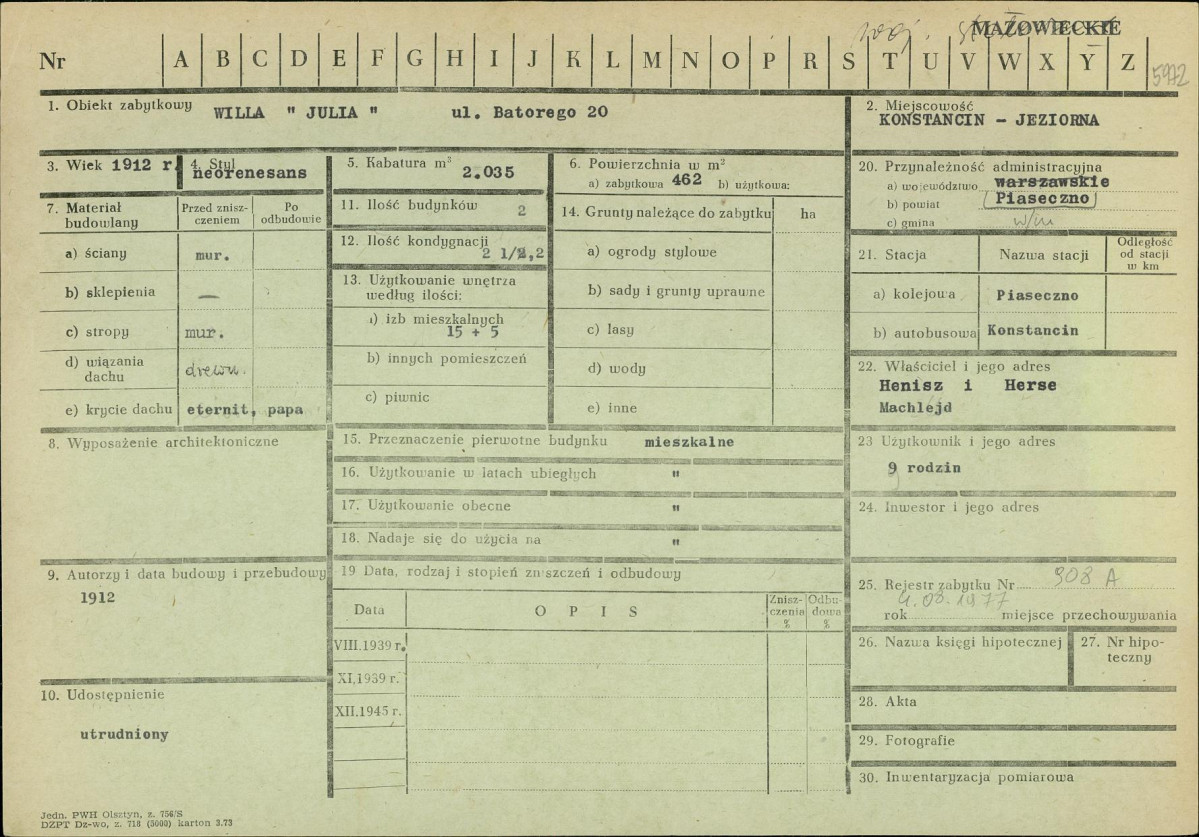 woj. MAZOWIECKIE
Nr A B C D E F G H I J K L M N O P R S T U V W X Y Z 5972
1. Obiekt zabytkowy WILLA " JULIA " ul. Batorego 20
2. Miejscowość
KONSTANCIN - JEZIORNA
3. Wiek 1912 r.
4. Styl
neorenesans
5. Kabatura m³
2.035
6. Powierzchnia w m²
a) zabytkowa 462 b) użytkowa:
20. Przynależność administracyjna
a) województwo warszawskie
b) powiat Piaseczno
c) gmina w/m
7. Materiał budowlany
Przed zniszczeniem
Po odbudowie
a) ściany mur.
b) sklepienia —
c) stropy mur.
d) wiązania dachu drewn.
e) krycie dachu eternit, papa
11. Ilość budynków 2
12. Ilość kondygnacji
2 1/2,2
13. Użytkowanie wnętrza
według ilości:
a) izb mieszkalnych
15 + 5
b) innych pomieszczeń
c) piwnic
14. Grunty należące do zabytku ha
a) ogrody stylowe
b) sady i grunty uprawne
c) lasy
d) wody
e) inne
21. Stacja Nazwa stacji Odległość od stacji w km
a) kolejowa Piaseczno
b) autobusowa Konstancin
22. Właściciel i jego adres
Henisz i Herse
Machlejd
8. Wyposażenie architektoniczne
15. Przeznaczenie pierwotne budynku mieszkalne
16. Użytkowanie w latach ubiegłych "
17. Użytkowanie obecne "
18. Nadaje się do użycia na "
23 Użytkownik i jego adres
9 rodzin
24. Inwestor i jego adres
9. Autorzy i data budowy i przebudowy
1912
19 Data, rodzaj i stopień zniszczeń i odbudowy
Data OPIS Zniszczenia % Odbudowa %
VIII.1939 r.
XI.1939 r.
XII.1945 r.
25. Rejestr zabytku Nr 908 A
4.08.1977
rok miejsce przechowywania
26. Nazwa księgi hipotecznej
27. Nr hipoteczny
10. Udostępnienie
utrudniony
28. Akta
29. Fotografie
30. Inwentaryzacja pomiarowa
Jedn. PWH Olsztyn, z. 756/S
DZPT Dz-wo, z. 718 (5000) karton 3.73